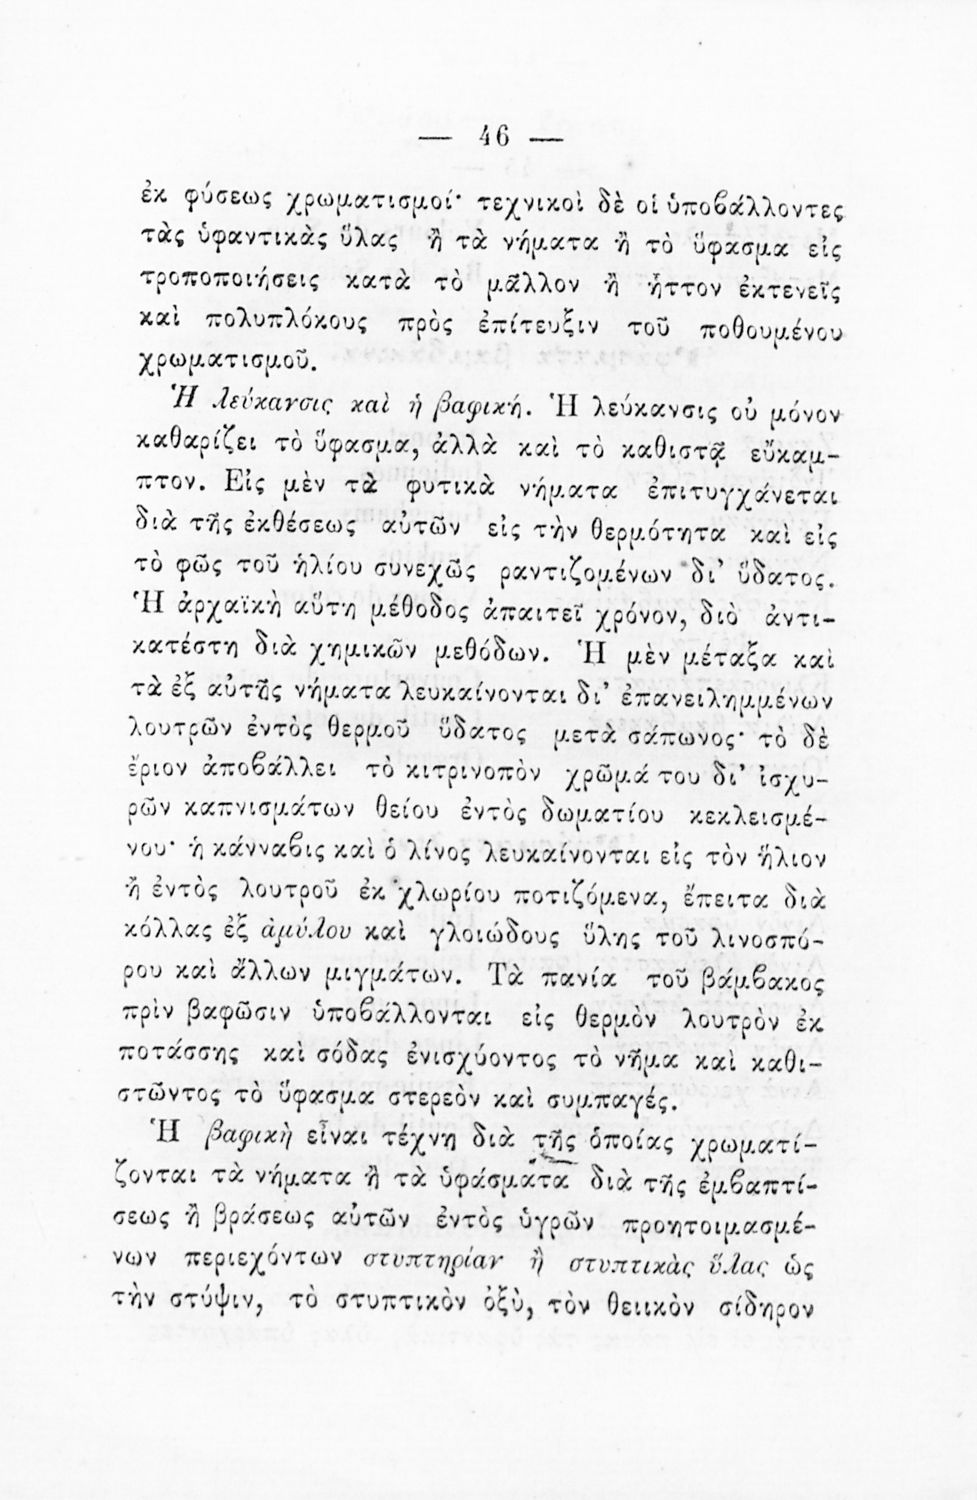 — 46 —
ἐκ φύσεως χρωματισμοί· τεχνικοὶ δὲ οἱ ὑποβάλλοντες
τὰς ὑφαντικὰς ὕλας ἢ τὰ νήματα ἢ τὸ ὕφασμα εἰς
τροποποιήσεις κατὰ τὸ μᾶλλον ἢ ἧττον ἐκτενεῖς
καὶ πολυπλόκους πρὸς ἐπίτευξιν τοῦ ποθουμένου
χρωματισμοῦ.
Ἡ λεύκανσις καὶ ἡ βαφική. Ἡ λεύκανσις οὐ μόνον
καθαρίζει τὸ ὕφασμα, ἀλλὰ καὶ τὸ καθιστᾷ εὔκαμ-
πτον. Εἰς μὲν τὰ φυτικὰ νήματα ἐπιτυγχάνεται
διὰ τῆς ἐκθέσεως αὐτῶν εἰς τὴν θερμότητα καὶ εἰς
τὸ φῶς τοῦ ἡλίου συνεχῶς ραντιζομένων δι' ὕδατος.
Ἡ ἀρχαϊκὴ αὕτη μέθοδος ἀπαιτεῖ χρόνον, διὸ ἀντι-
κατέστη διὰ χημικῶν μεθόδων. Ἡ μὲν μέταξα καὶ
τὰ ἐξ αὐτῆς νήματα λευκαίνονται δι' ἐπανειλημμένων
λουτρῶν ἐντὸς θερμοῦ ὕδατος μετὰ σάπωνος· τὸ δὲ
ἔριον ἀποβάλλει τὸ κιτρινοπὸν χρῶμά του δι' ἰσχυ-
ρῶν καπνισμάτων θείου ἐντὸς δωματίου κεκλεισμέ-
νου· ἡ κάνναβις καὶ ὁ λίνος λευκαίνονται εἰς τὸν ἥλιον
ἢ ἐντὸς λουτροῦ ἐκ χλωρίου ποτιζόμενα, ἔπειτα διὰ
κόλλας ἐξ ἀμύλου καὶ γλοιώδους ὕλης τοῦ λινοσπό-
ρου καὶ ἄλλων μιγμάτων. Τὰ πανία τοῦ βάμβακος
πρὶν βαφῶσιν ὑποβάλλονται εἰς θερμὸν λουτρὸν ἐκ
ποτάσσης καὶ σόδας ἐνισχύοντος τὸ νῆμα καὶ καθι-
στῶντος τὸ ὕφασμα στερεὸν καὶ συμπαγές.
Ἡ βαφικὴ εἶναι τέχνη διὰ τῆς ὁποίας χρωματί-
ζονται τὰ νήματα ἢ τὰ ὑφάσματα διὰ τῆς ἐμβαπτί-
σεως ἢ βράσεως αὐτῶν ἐντὸς ὑγρῶν προητοιμασμέ-
νων περιεχόντων στυπτηρίαν ἢ στυπτικὰς ὕλας ὡς
τὴν στύψιν, τὸ στυπτικὸν ὀξὺ, τὸν θειικὸν σίδηρον